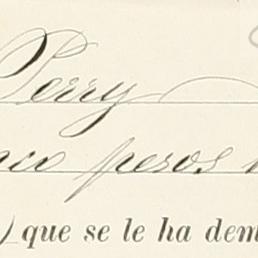 Perry
nco pesos
) que se le ha dem